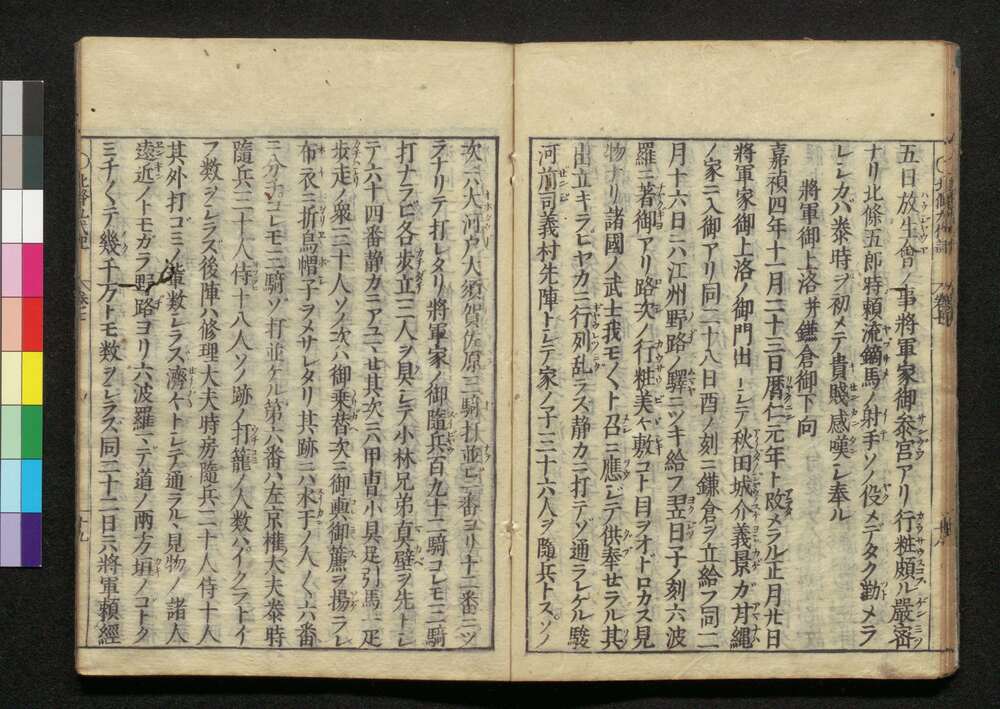 五日放生會ノ事將軍家御參宮アリ行粧頗ル嚴密
ナリ北條五郎時頼流鏑馬ノ射手ソノ役メデタク勤メラ
レシカバ泰時ヲ初メテ貴賤感嘆シ奉ル
將軍御上洛并鎌倉御下向
嘉禎四年十一月二十三日暦仁元年ト改メラル正月廿日
將軍家御上洛ノ御門出トシテ秋田城介義景ガ甘縄
ノ家ニ入御アリ同二十八日酉ノ刻ニ鎌倉ヲ立給フ同二
月十六日ニハ江州野路ノ驛ニツキ給フ翌日子ノ刻六波
羅ニ著御アリ路次ノ行粧美々敷コト目ヲオドロカス見
物ナリ諸國ノ武士我モ〱ト召ニ應ジテ供奉セラル其
出立キラビヤカニ行列乱ラズ静カニ打テゾ通ラレケル駿
河前司義村先陣トシテ家ノ子三十六人ヲ隨兵トスソノ
次ニハ大河戸大須賀佐原三騎打並ビ一番ヨリ十二番ニツ
ラナリテ打レタリ將軍家ノ御隨兵百九十二騎コレモ三騎
打ナラビ各歩立三人ヲ具シテ小林兄弟真壁ヲ先トシ
テ六十四番静カニアユマセ其次ニハ甲冑小具足引馬一疋
歩走ノ衆三十人ソノ次ハ御乗替次ニ御輿御簾ヲ揚ラレ
布衣ニ折烏帽子ヲメサレタリ其跡ニハ水干ノ人〱六番
ニ分チコレモ三騎ヅ打並ケル第六番ハ左京權大夫泰時
隨兵二十人侍十八人ソノ跡ノ打籠ノ人数ハイクラトイ
フ数ヲシラズ後陣ハ修理大夫時房隨兵二十人侍十人
其外打コミノ輩数シラズ濟々トシテ通ラル見物ノ諸人
遠近ノトモガラ野路ヨリ六波羅マデ道ノ両方垣ノゴトク
三千〱テ幾千万トモ数ヲシラズ同二十二日ニハ將軍頼經